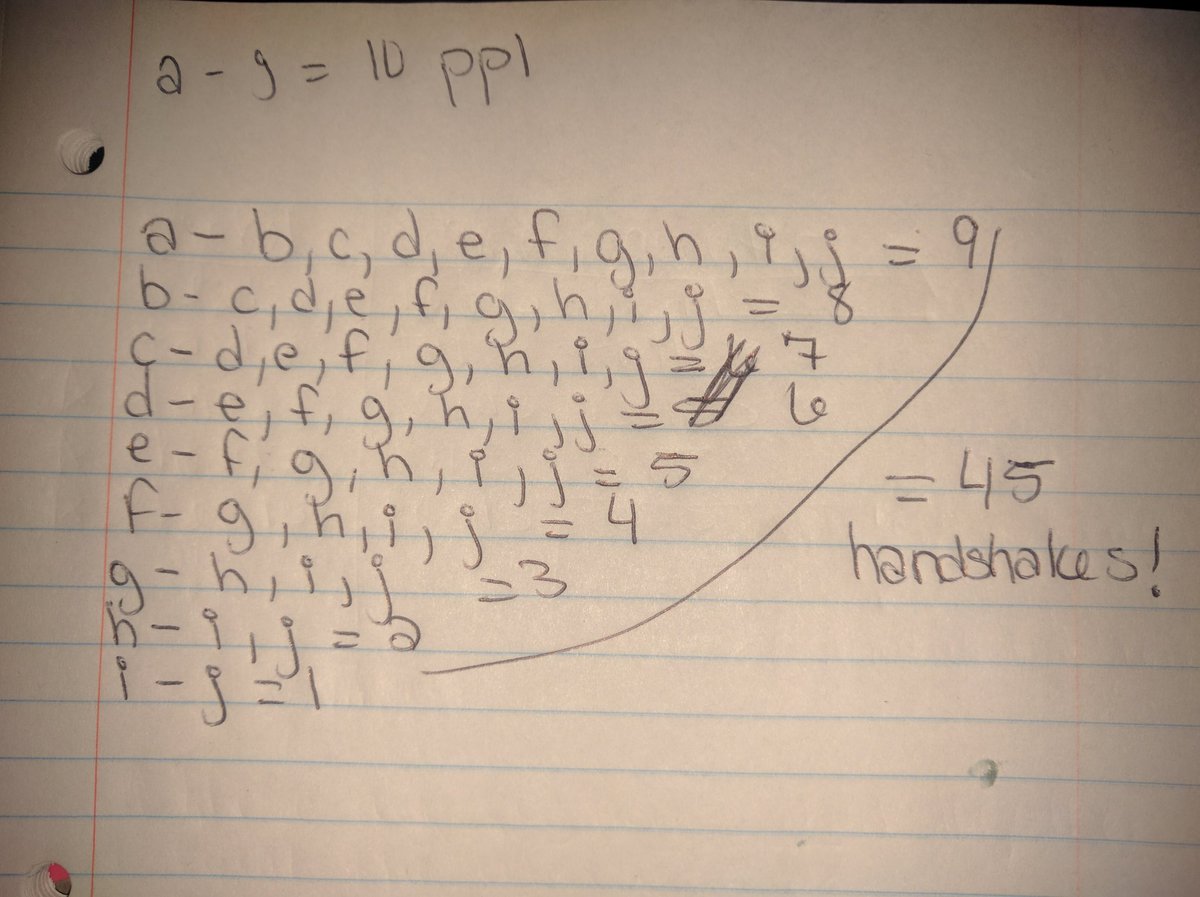 a - j = 10 ppl
a - b, c, d, e, f, g, h, i, j = 9
b - c, d, e, f, g, h, i, j = 8
c - d, e, f, g, h, i, j = 7
d - e, f, g, h, i, j = 6
e - f, g, h, i, j = 5
f - g, h, i, j = 4
g - h, i, j = 3
h - i, j = 2
i - j = 1
= 45
handshakes!